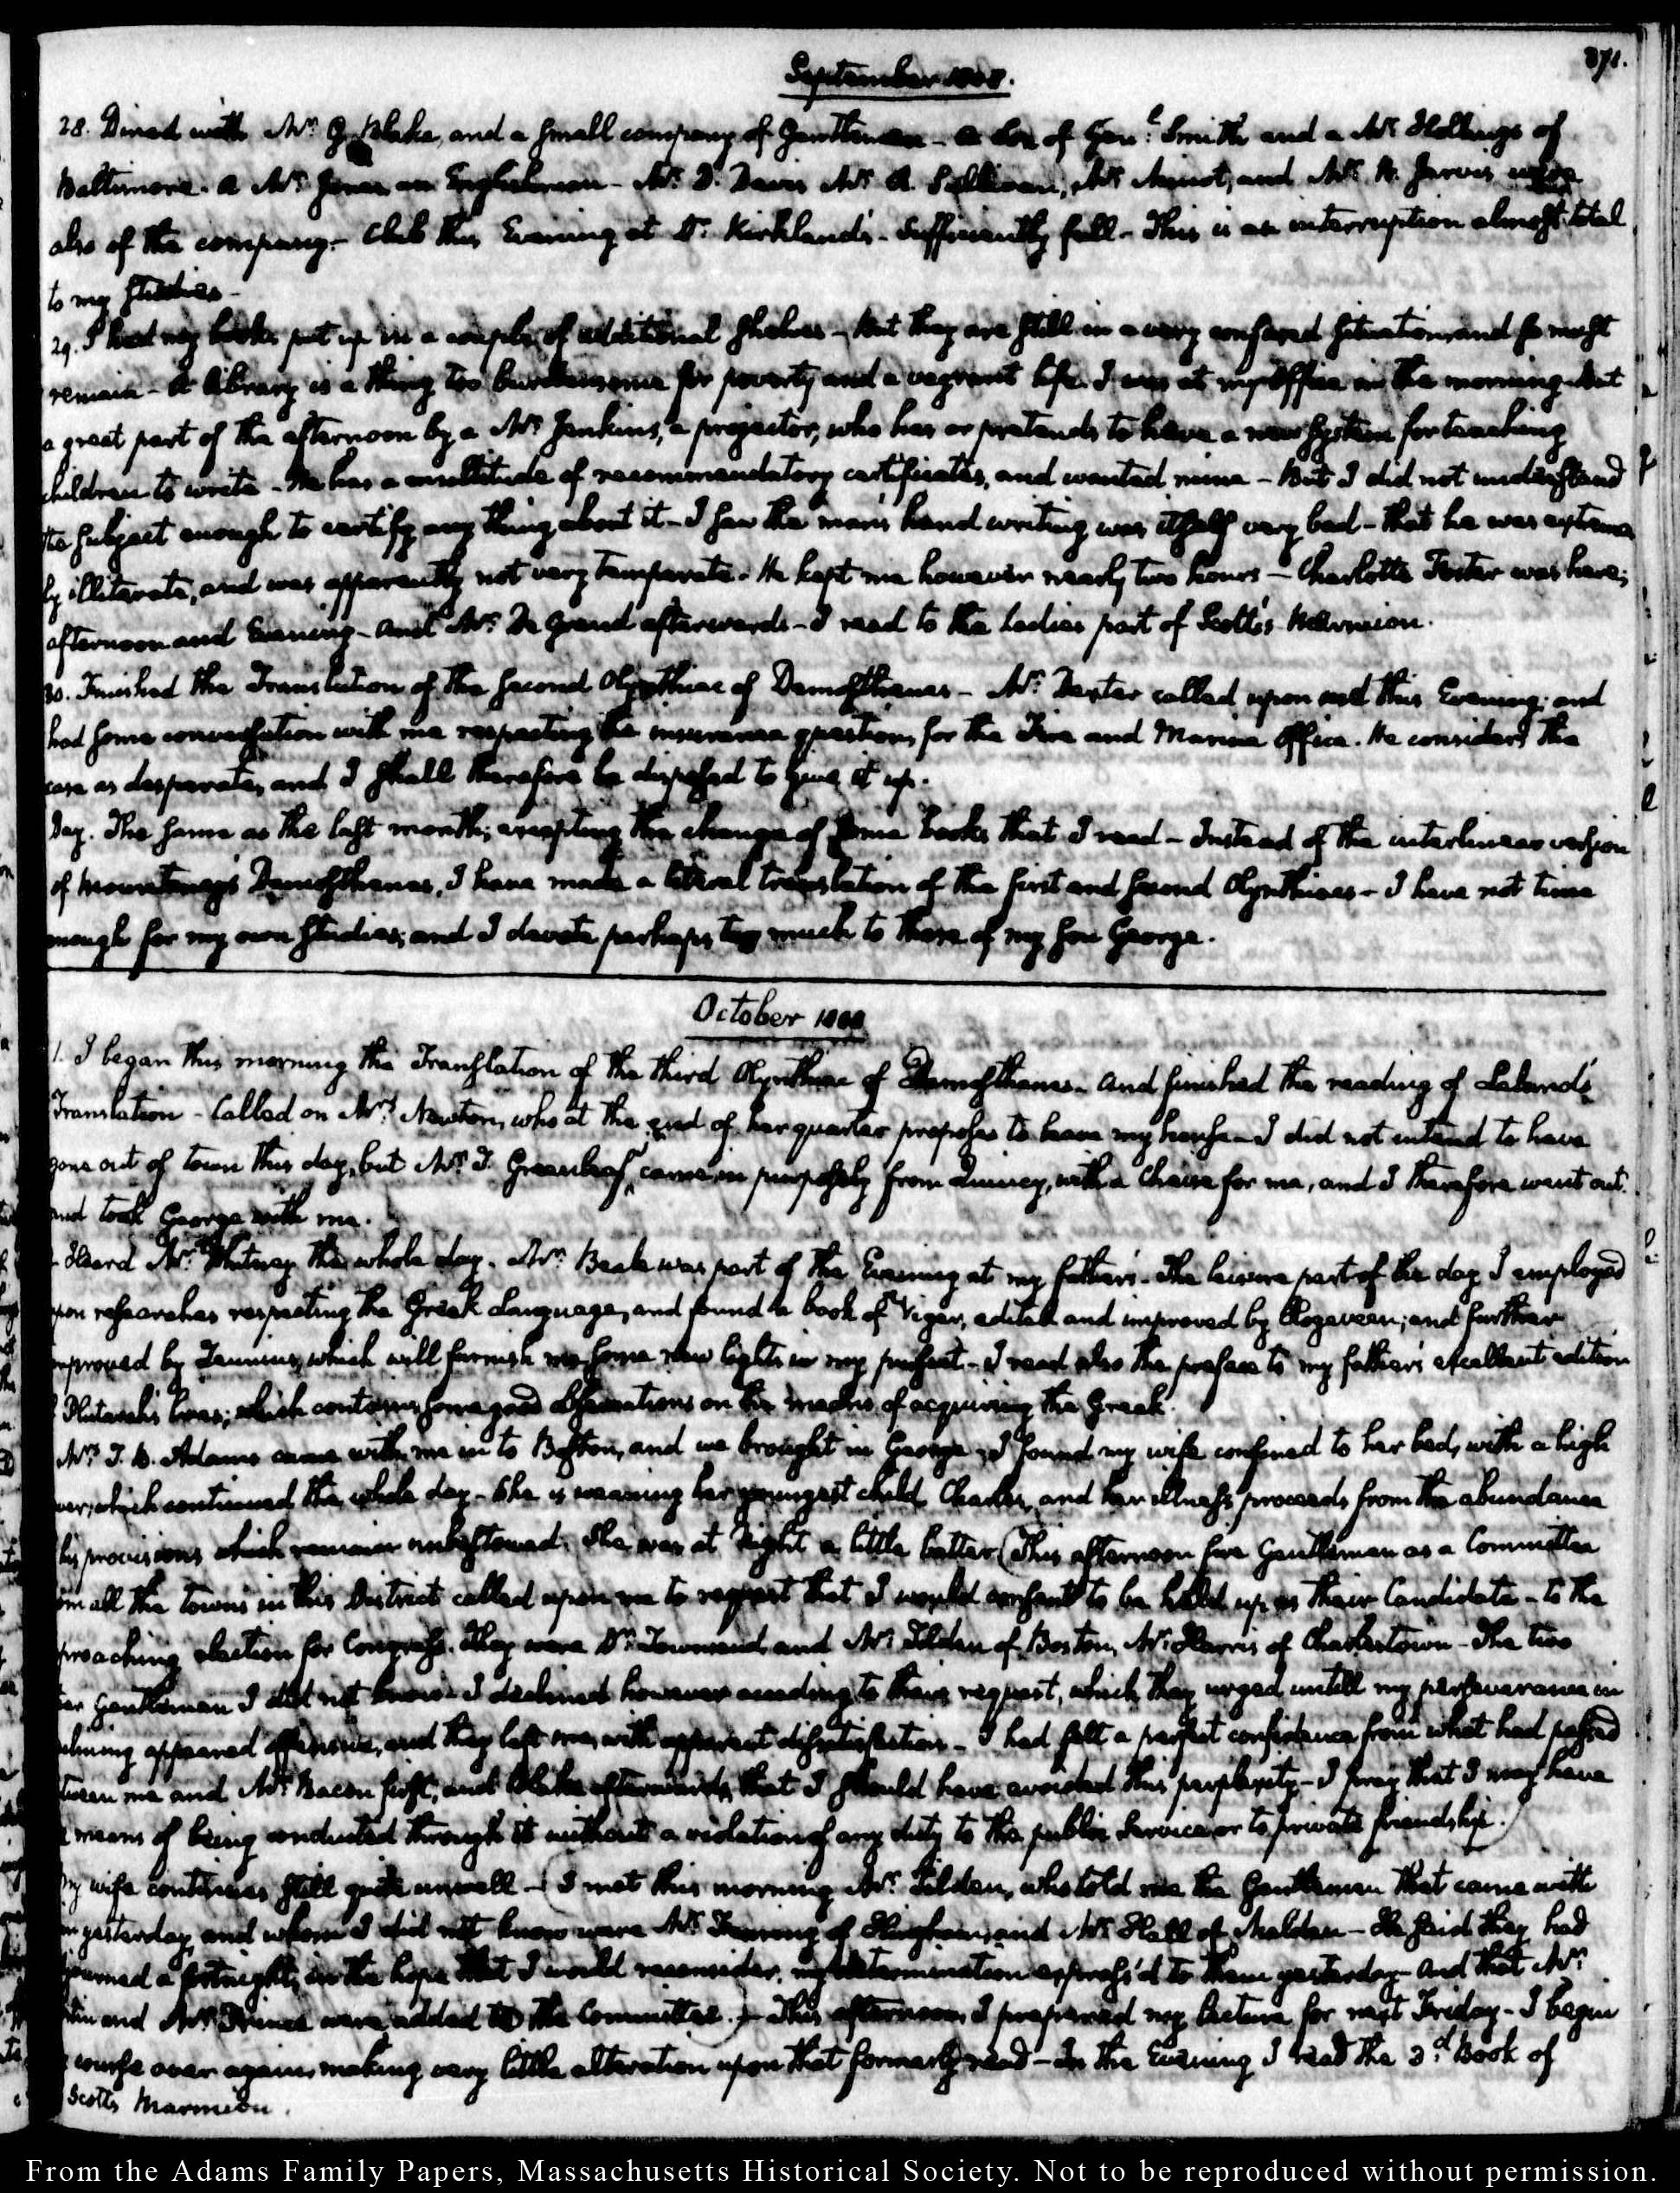 September 1808.
371.
28. Dined with Mr. G. Blake, and a small company of Gentlemen - a Son of Genl. Smith and a Mr. Hollings of
Baltimore. a Mr. Jones an Englishman - Mr. D. Davis Mr. A. Sullivan, Mr. Minot, and Mr. W. Jarvis were
also of the company. - Club this Evening at Dr. Kirkland's - Sufficiently full - This is an interruption almost total
to my Studies -
29. I had my books put up in a couple of additional shelves - But they are still in a very confused situation and so must
remain - A library is a thing too burdensome for poverty and a vagrant life. I was at my Office in the morning - but
a great part of the afternoon by a Mr. Jenkins, a projector, who has or pretends to have a new System for teaching
children to write - He has a multitude of recommendatory certificates, and wanted mine - But I did not understand
the subject enough to certify any thing about it - I saw the man's hand writing was itself very bad - that he was extreme
ly illiterate, and was apparently not very temperate. He kept me however nearly two hours - Charlotte Foster was here;
afternoon and Evening - and Mr. De Grand afterwards - I read to the Ladies part of Scott's Marmion.
30. Finished the Translution of the second Olynthiac of Demosthenes - Mr. Dexter called upon me this Evening; and
had some conversation with me respecting the insurance questions for the Fire and Marine Office. He considers the
case as desperate, and I shall therefore be disposed to give it up.
Day. The same as the last month; excepting the change of some books that I read - Instead of the interlinear version
of Mountenay's Demosthenes, I have made a literal translation of the first and second Olynthiacs - I have not time
enough for my own studies, and I devote perhaps too much to those of my son George.
October 1808
1. I began this morning the Translation of the third Olynthiac of Demosthenes - and finished the reading of Leland's
Translation - Called on Mrs. Newton, who at the end of her quarter proposes to leave my house - I did not intend to have
gone out of town this day, but Mr. J. Greenleaf came in purposely from Quincy, with a Chaise for me, and I therefore went out.
and took George with me.
Heard Mr. Whitney the whole day. Mr. Beale was part of the Evening at my father's. The leisure part of the day I employed
upon researches respecting the Greek Language, and found a book of Viger, edited and improved by Hoogeveen; and further
improved by Zeunius, which will furnish me some new lights in my pursuit - I read also the preface to my father's excellent edition
Plutarch's lives; which contains some good observations on the means of acquiring the Greek.
Mrs. T. B. Adams came with me in to Boston, and we brought in George. I found my wife confined to her bed, with a high
which continued the whole day - She is weaning her youngest child Charles, and her illness proceeds from the abundance
his provisions which remain unbestowed. She was at Night a little better (This afternoon five Gentlemen as a Committee
from all the towns in this District called upon me to request that I would consent to be held up as their Candidate - to the
approaching election for Congress. They were Dr. Townsend and Mr. Tilden of Boston, Mr. Harris of Charlestown - The two
Gentlemen I did not know - I declined however acceding to their request, which they urged untill my perseverance in
declining appeared offensive, and they left me, with apparent dissatisfaction - I had felt a perfect confidence from what had passed
between me and Mr. Bacon first, and Blake afterwards, that I should have avoided this perplexity - I pray that I may have
means of being conducted through it without a violation of any duty to the public Service or to private friendship.)
My wife continues still quite unwell - (I met this morning Mr. Tilden, who told me the Gentlemen that came with
yesterday, and whom I did not know were Mr. of Hingham, and Mr. Hall of Malden - He said they had
adjourned a fortnight, in the hope that I would reconsider, my determination express'd to them yesterday - And that Mr.
and Mr. Prince were added to the Committee.) - This afternoon, I prepared my Lecture for next Friday - I begin
course over again, making very little alteration upon that formerly read - In the Evening I read the 3d. Book of
Scott's Marmion.
From the Adams Family Papers, Massachusetts Historical Society. Not to be reproduced without permission.